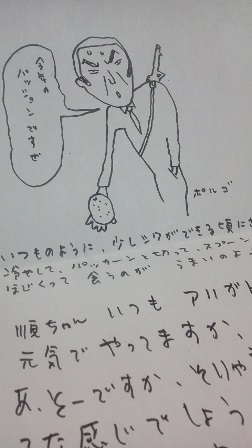 今年の
パッションですぜ
ポルゴ
いつものように、少しシワができる頃に
冷やして、パッカーンと切って、スプーン
ほじくって 食うのが うまいのよ
順ちゃん いつも アリが
元気で やってますか、
あ、そーですか、そりゃ
感じでしょう